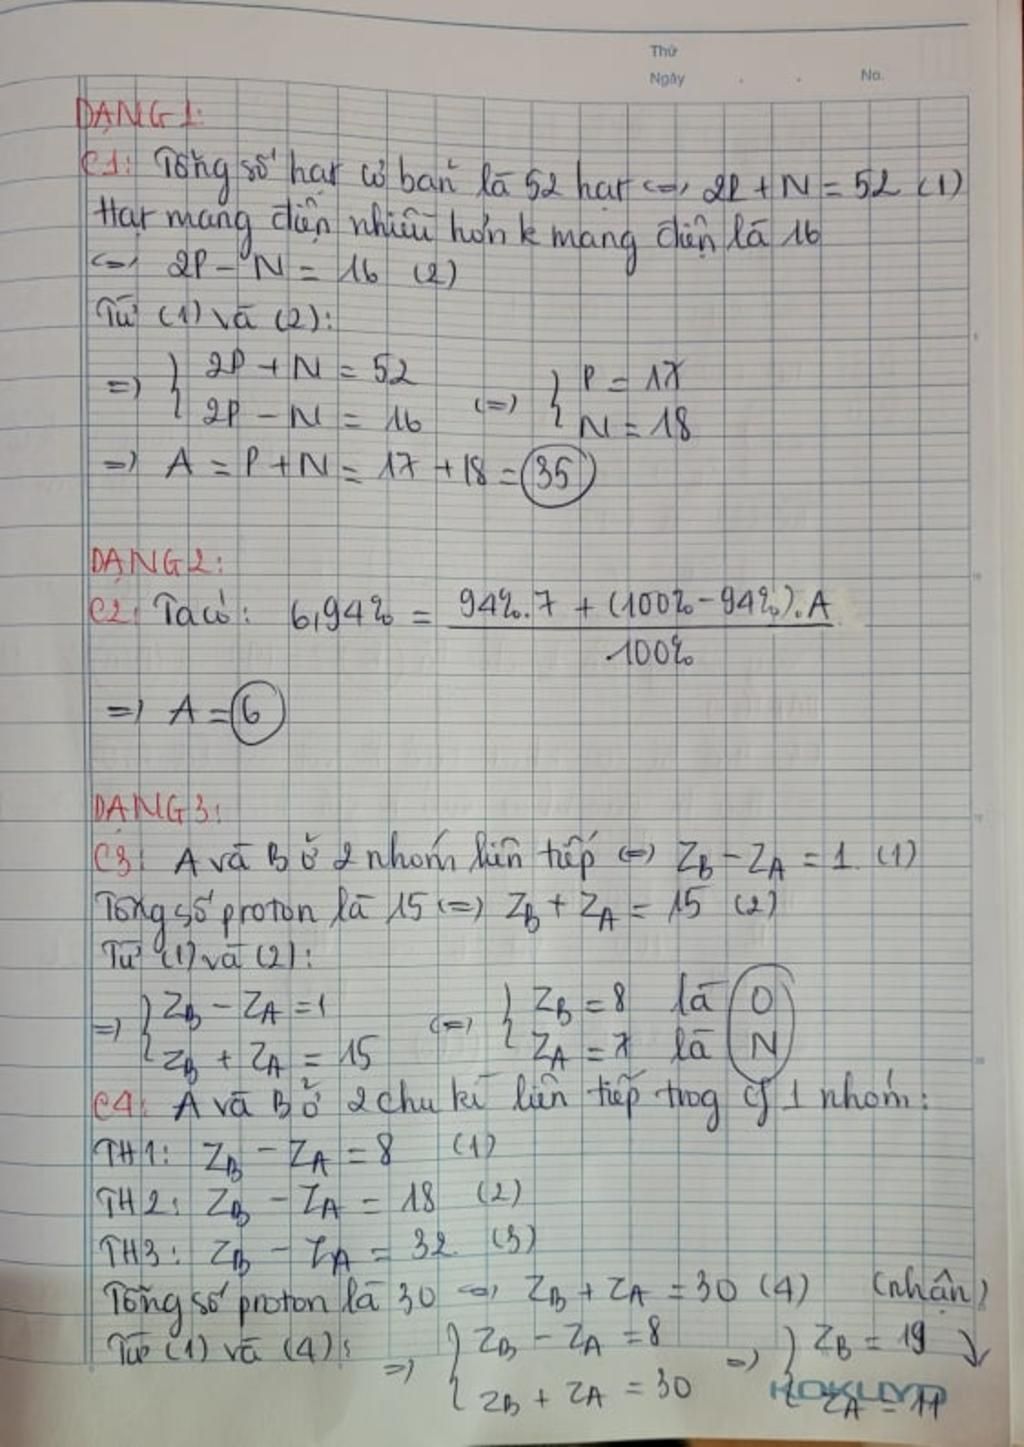 Thứ
Ngày . . No.
DẠNG 1:
C1: Tổng số hạt cơ bản là 52 hạt <=> 2P + N = 52 (1)
Hạt mang điện nhiều hơn k mang điện là 16
<=> 2P - N = 16 (2)
Từ (1) và (2):
=> { 2P + N = 52
2P - N = 16 <=> { P = 17
N = 18
=> A = P + N = 17 + 18 = 35
DẠNG 2:
C2: Ta có: 6,94% = 94%.7 + (100% - 94%).A
100%
=> A = 6
DẠNG 3:
C3: A và B ở 2 nhóm liên tiếp <=> Z_B - Z_A = 1. (1)
Tổng số proton là 15 <=> Z_B + Z_A = 15 (2)
Từ (1) và (2):
=> { Z_B - Z_A = 1
Z_B + Z_A = 15 <=> { Z_B = 8 là O
Z_A = 7 là N
C4: A và B ở 2 chu kì liên tiếp trog cg 1 nhóm:
TH1: Z_B - Z_A = 8 (1)
TH2: Z_B - Z_A = 18 (2)
TH3: Z_B - Z_A = 32. (3)
Tổng số proton là 30 <=> Z_B + Z_A = 30 (4) (nhận)
Từ (1) và (4): => { Z_B - Z_A = 8
Z_B + Z_A = 30 => { Z_B = 19
Z_A = 11
KOKUYO